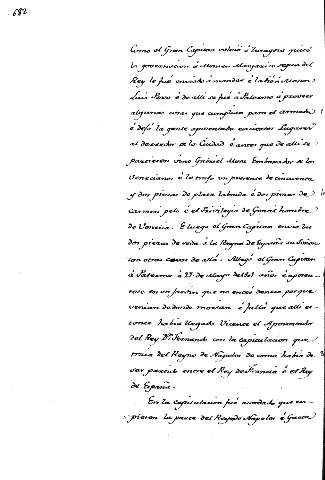 682
Como el Gran Capitan volvió a Zaragoça quitó
la governacion a Mosen Margarin segun del
Rey le fué enviado á mandar é la dió á Mosen
Luis Pexo é de alli se fué á Palermo á proveer
algunas cosas que cumplian para el armada
é dejó la gente aposentada en ciertos Lugares
al derredor de la Ciudad é antes que de alli se
partiesen vino Gabriel More Embaxador de los
Venecianos é le trajo un presente de cincuenta
y dos piezas de plata labrada é dos piezas de
Carmesi pelo é el Privilegio de Gentil hombre
de Venecia. E luego el Gran Capitan envió las
dos piezas de seda á la Reyna de España
con otras cosas de allá. Allegó el Gran Capitan
á Palermo á 27 de Mayo de 1501 años é
en un Jardin que no entró dentro porque
venian do donde morian é falló que alli
havia llegado Vicente el Aposentador
del Rey Dn. Fernando con la capitulacion que
traia del Reyno de Napoles de como habia de
ser partido entre el Rey de Francia é el Rey
de España.
En la capitulacion fué acordado que
la parte del Reyno de Napoles é Gaeta